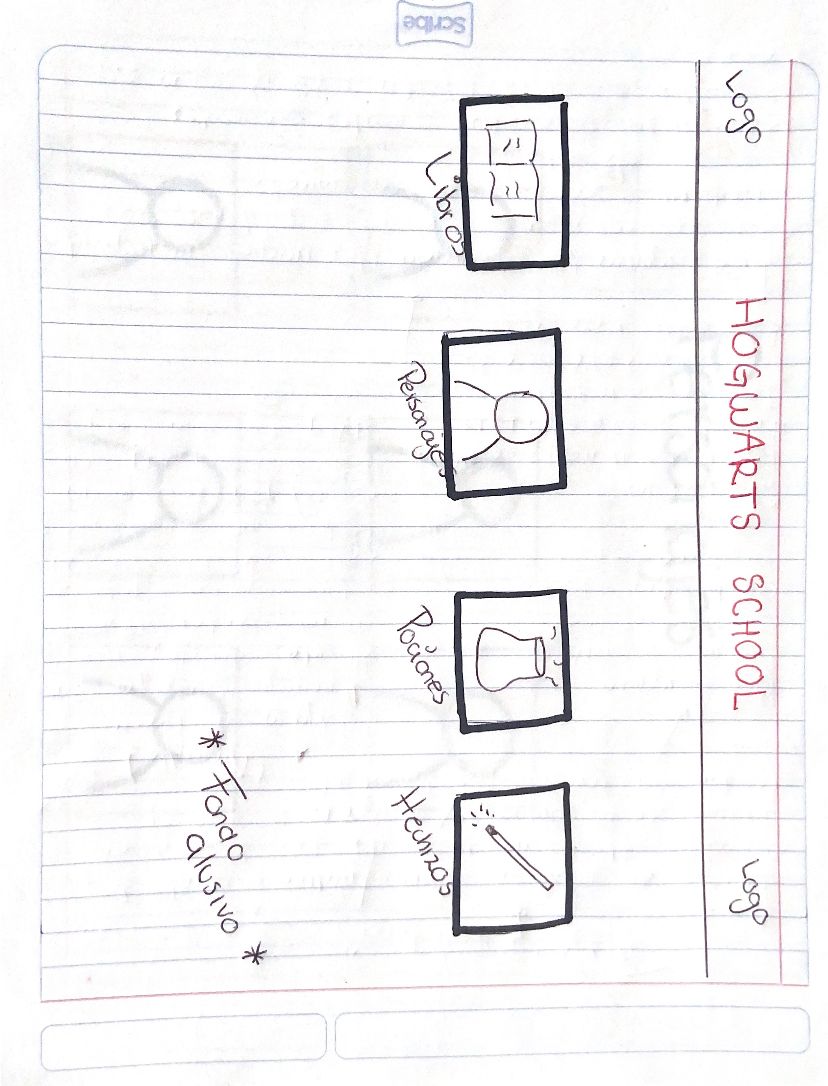 Scribe
Logo
HOGWARTS SCHOOL
Logo
Libros
Personajes
Pociones
Hechizos
* Fondo
alusivo *